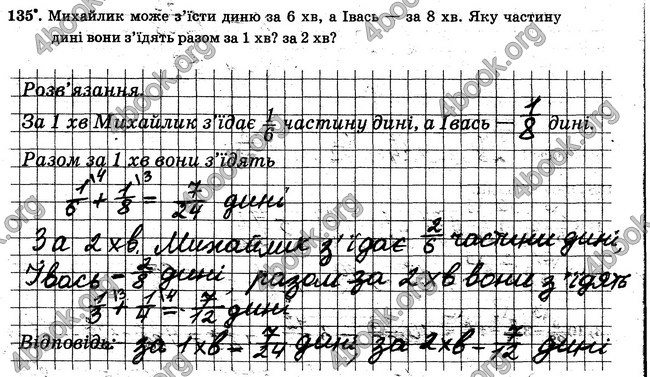 135°. Михайлик може з’їсти диню за 6 хв, а Івась — за 8 хв. Яку частину
дині вони з’їдять разом за 1 хв? за 2 хв?
Розв’язання.
За 1 хв Михайлик з’їдає 1/6 частину дині, а Івась — 1/8 дині.
Разом за 1 хв вони з’їдять
1/6 \4 + 1/8 \3 = 7/24 дині
За 2 хв. Михайлик з’їдає 2/6 частини дині,
Івась – 2/8 дині, разом за 2 хв вони з’їдять
1/3 \3 + 1/4 \4 = 7/12 дині
Відповідь: за 1 хв – 7/24 дині, за 2 хв – 7/12 дині
4book.org